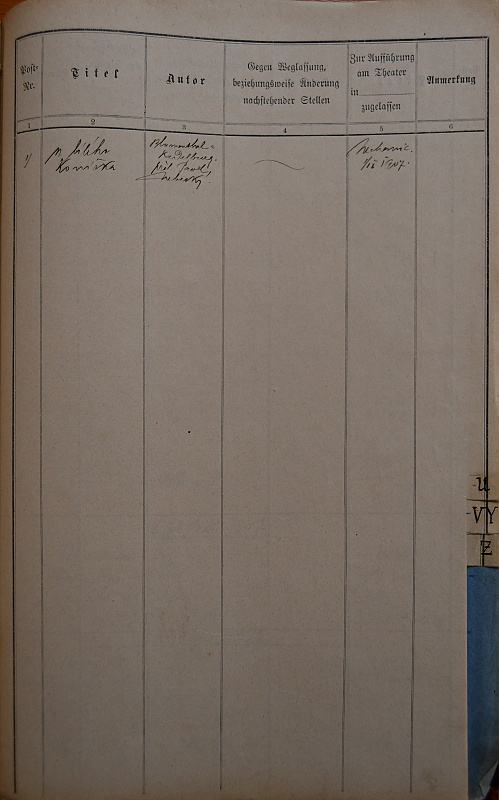 Post-
Nr.
Titel
Autor
Gegen Weglassung,
beziehungsweise Änderung
nachstehender Stellen
Zur Aufführung
am Theater
in
zugelassen
Anmerkung
1
2
3
4
5
6
1/
Blumenthal-
Kadelburg.
Koníčka
1907.
U
VY
Z